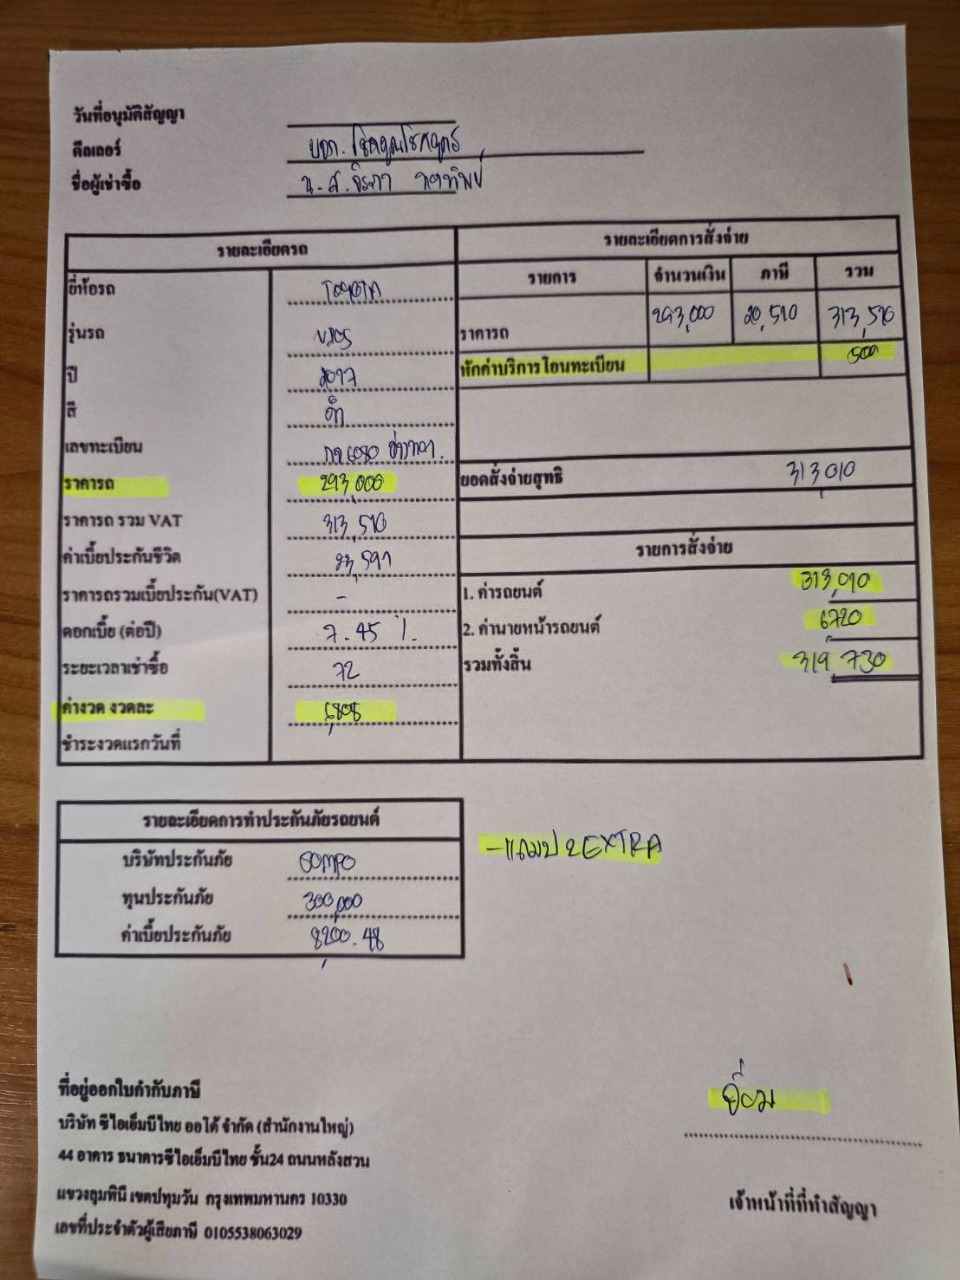 วันที่อนุมัติสัญญา
ดีลเลอร์ บจก. โชคคูณโชค
ชื่อผู้เช่าซื้อ น.ส.
รายละเอียดรถ
ยี่ห้อรถ TOYOTA
รุ่นรถ VIOS
ปี 2017
สี ดำ
เลขทะเบียน
ราคารถ 293,000
ราคารถ รวม VAT 313,510
ค่าเบี้ยประกันชีวิต 23,591
ราคารถรวมเบี้ยประกัน(VAT) -
ดอกเบี้ย (ต่อปี) 7.45 %
ระยะเวลาเช่าซื้อ 72
ค่างวด งวดละ 6,808
ชำระงวดแรกวันที่
รายละเอียดการสั่งจ่าย
รายการ จำนวนเงิน ภาษี รวม
ราคารถ 293,000 20,510 313,510
หักค่าบริการโอนทะเบียน 500
ยอดสั่งจ่ายสุทธิ 313,010
รายการสั่งจ่าย
1. ค่ารถยนต์ 313,010
2. ค่านายหน้ารถยนต์ 6,720
รวมทั้งสิ้น 319,730
รายละเอียดการทำประกันภัยรถยนต์
บริษัทประกันภัย SOMPO
ทุนประกันภัย 300,000
ค่าเบี้ยประกันภัย 8,200.48
- แถมป 2 EXTRA
ที่อยู่ออกใบกำกับภาษี
บริษัท ซีไอเอ็มบีไทย ออโต้ จำกัด (สำนักงานใหญ่)
44 อาคาร ธนาคารซีไอเอ็มบีไทย ชั้น24 ถนนหลังสวน
แขวงลุมพินี เขตปทุมวัน กรุงเทพมหานคร 10330
เลขที่ประจำตัวผู้เสียภาษี 0105538063029
เจ้าหน้าที่ที่ทำสัญญา